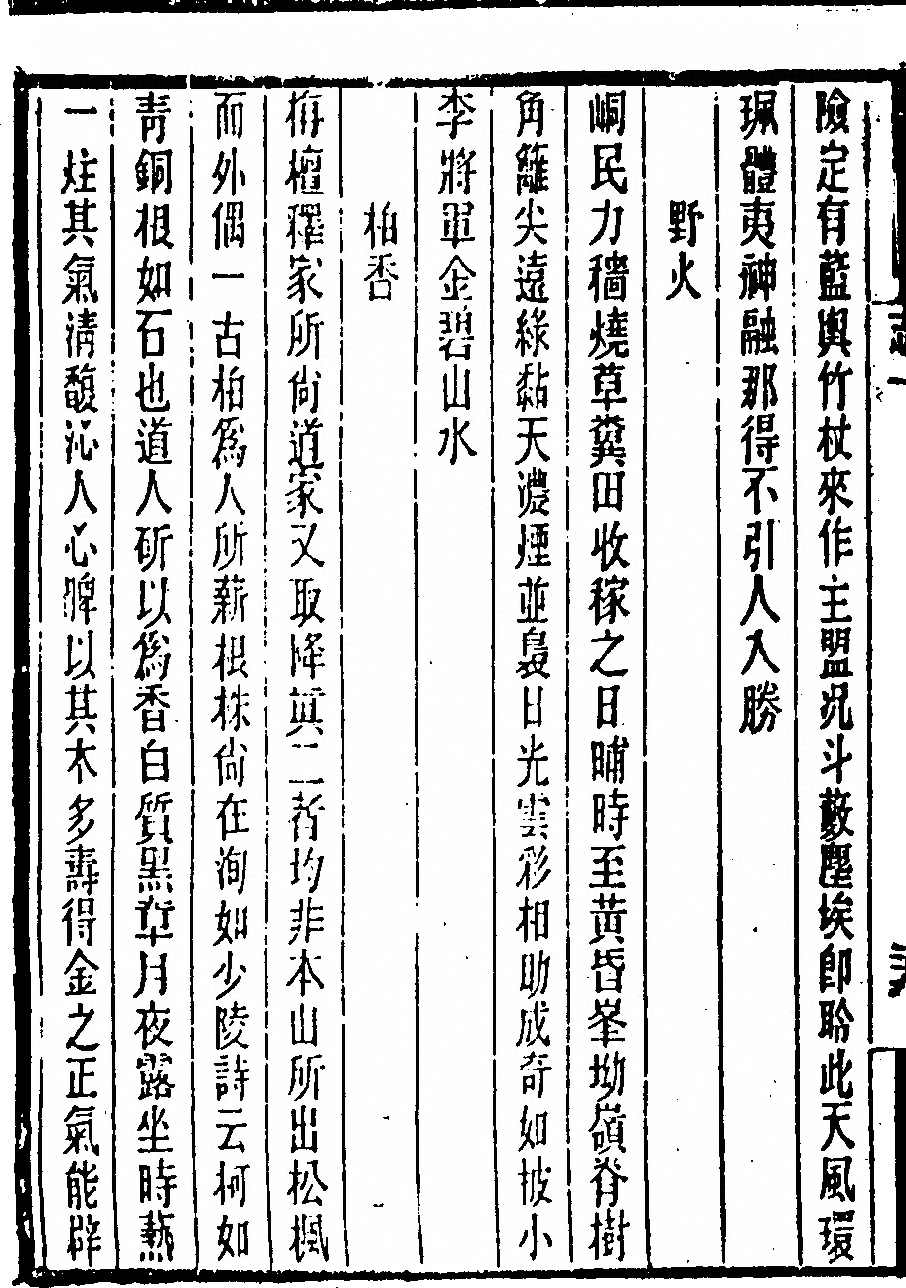 險定有藍輿竹杖來作主盟况斗藪塵埃卽聆此天風環
珮體夷神融那得不引人入勝
野火
峒民力穡燒草糞田收稼之日晡時至黃昏峯坳嶺脊樹
角籬尖遠綠黏天濃煙並裊日光雲彩相助成奇如披小
李將軍金碧山水
柏香
栴檀釋家所尙道家又取降眞二者均非本山所出松楓
而外偶一古柏爲人所薪根株尙在洵如少陵詩云柯如
靑銅根如石也道人斫以爲香白質黑章月夜露坐時爇
一炷其氣淸馥沁人心脾以其木多壽得金之正氣能辟